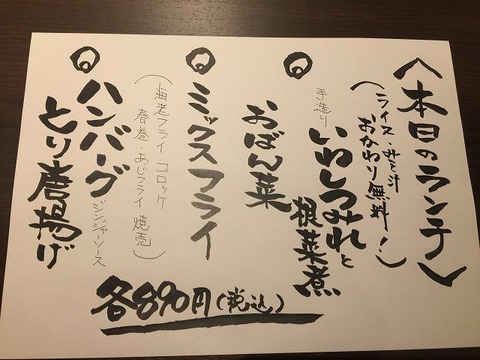 〈本日のランチ〉
(ライス・みそ汁
おかわり無料!)
○手造り いわしつみれと
根菜煮
おばん菜
○ミックスフライ
(海老フライ コロッケ
春巻 あじフライ 焼売)
○ハンバーグ ジンジャーソース
とり唐揚げ
各890円(税込)